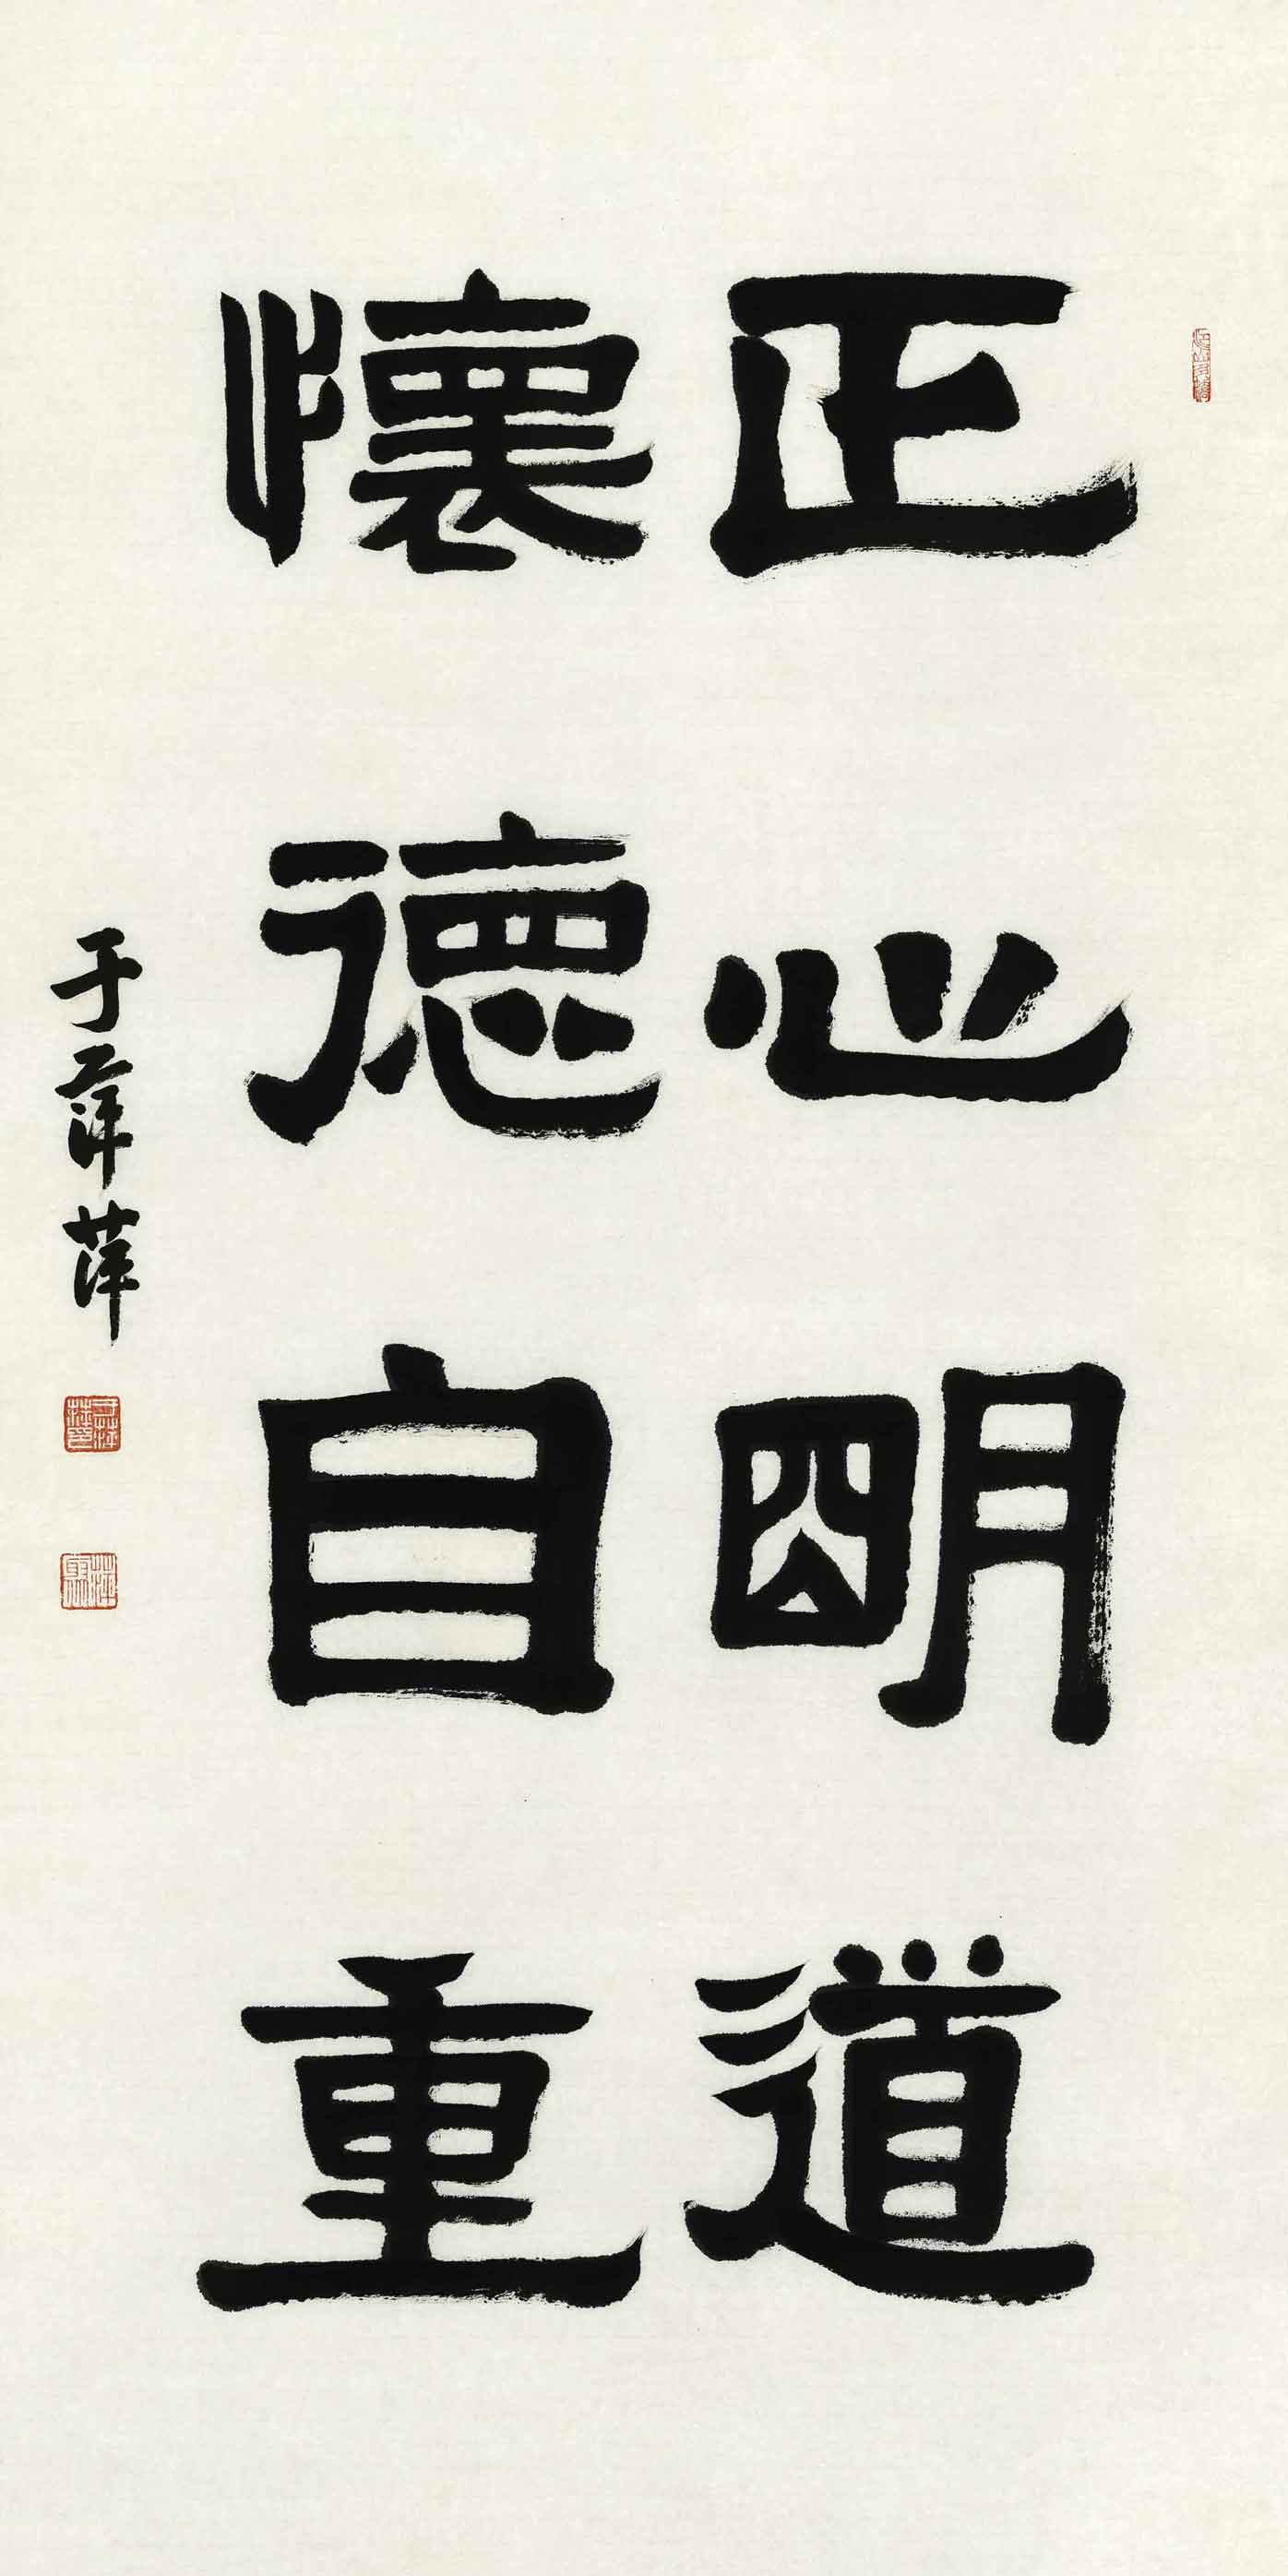 正心明道
懷德自重
于萍萍